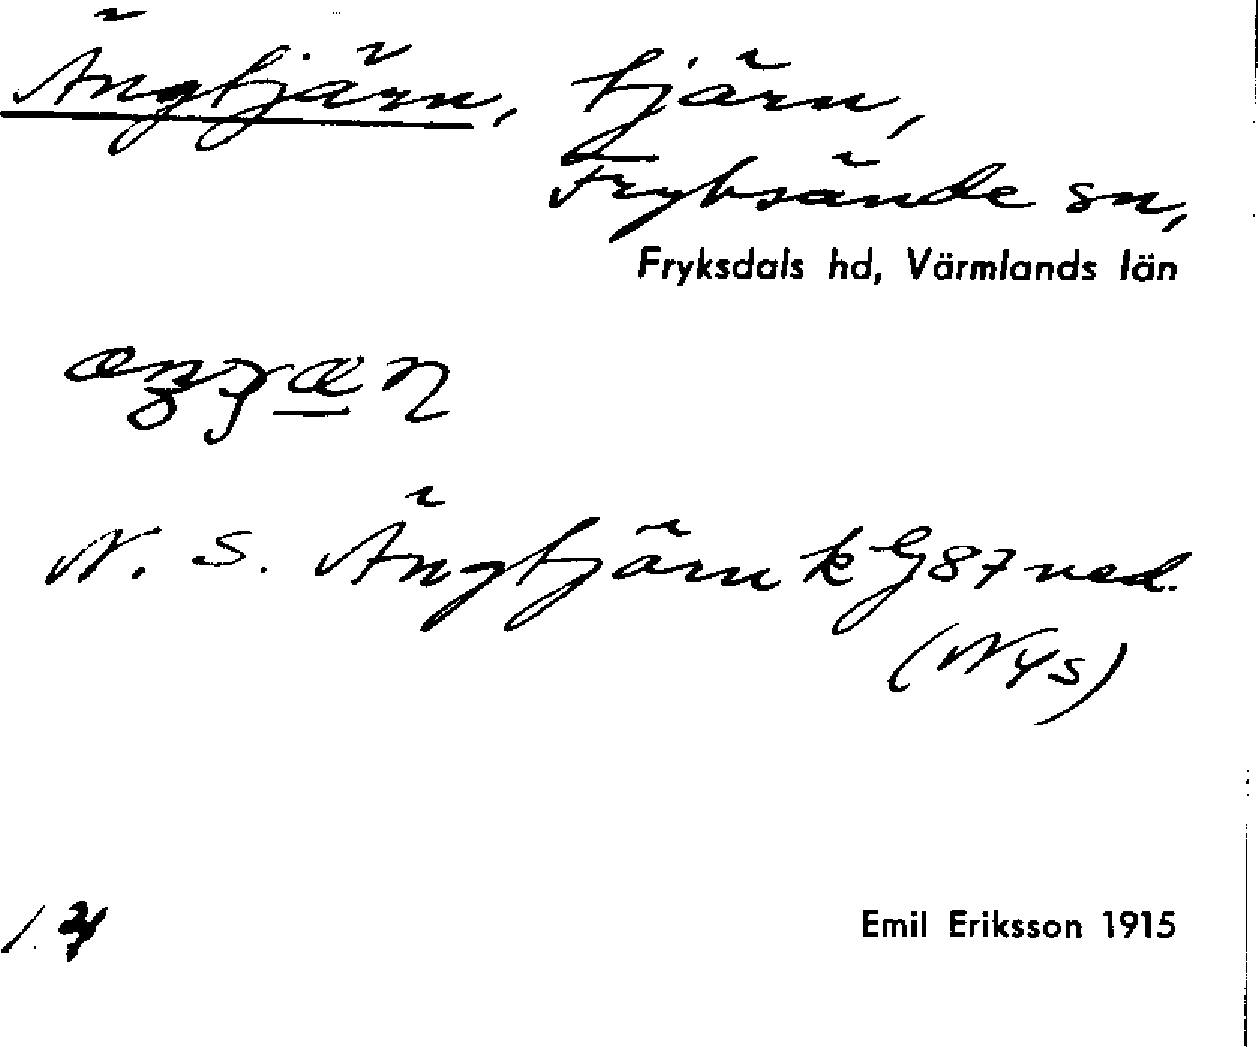 Ängtjärn, tjärn,
Fryksände sn,
Fryksdals hd, Värmlands län
N. S. Ängtjärn k G87 ned.
(NYs)
Emil Eriksson 1915